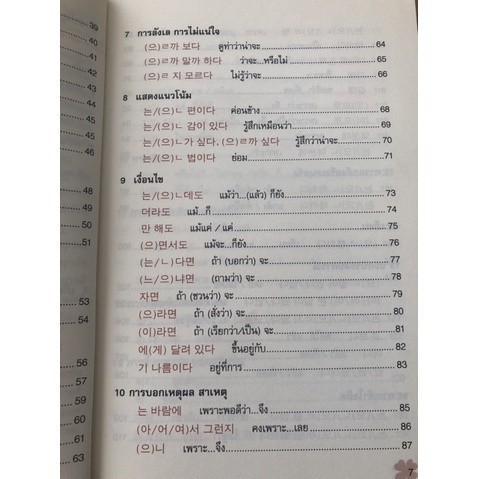 39
40
41
42
43
44
45
46
48
49
50
51
53
54
56
60
62
63
7 การลังเล การไม่แน่ใจ
(으)ㄹ까 보다 ดูท่าว่าน่าจะ 64
(으)ㄹ까 말까 하다 ว่าจะ...หรือไม่ 65
(으)ㄹ 지 모르다 ไม่รู้ว่าจะ 66
8 แสดงแนวโน้ม
는/(으)ㄴ 편이다 ค่อนข้าง 68
는/(으)ㄴ 감이 있다 รู้สึกเหมือนว่า... 69
는/(으)ㄴ가 싶다, (으)ㄹ까 싶다 รู้สึกว่าน่าจะ 70
는/(으)ㄴ 법이다 ย่อม 71
9 เงื่อนไข
는/(으)ㄴ데도 แม้ว่า...(แล้ว) ก็ยัง 73
더라도 แม้...ก็ 74
만 해도 แม้แค่ / แค่ 75
(으)면서도 แม้จะ...ก็ยัง 76
(는/ㄴ)다면 ถ้า (บอกว่า) จะ 77
(느/으)냐면 ถ้า (ถามว่า) จะ 78
자면 ถ้า (ชวนว่า) จะ 79
(으)라면 ถ้า (สั่งว่า) จะ 80
(이)라면 ถ้า (เรียกว่า/เป็น) จะ 81
에(게) 달려 있다 ขึ้นอยู่กับ 82
기 나름이다 อยู่ที่การ 83
10 การบอกเหตุผล สาเหตุ
는 바람에 เพราะพอดีว่า...จึง 85
(아/어/여)서 그런지 คงเพราะ...เลย 86
(으)니 เพราะ...จึง 87
7